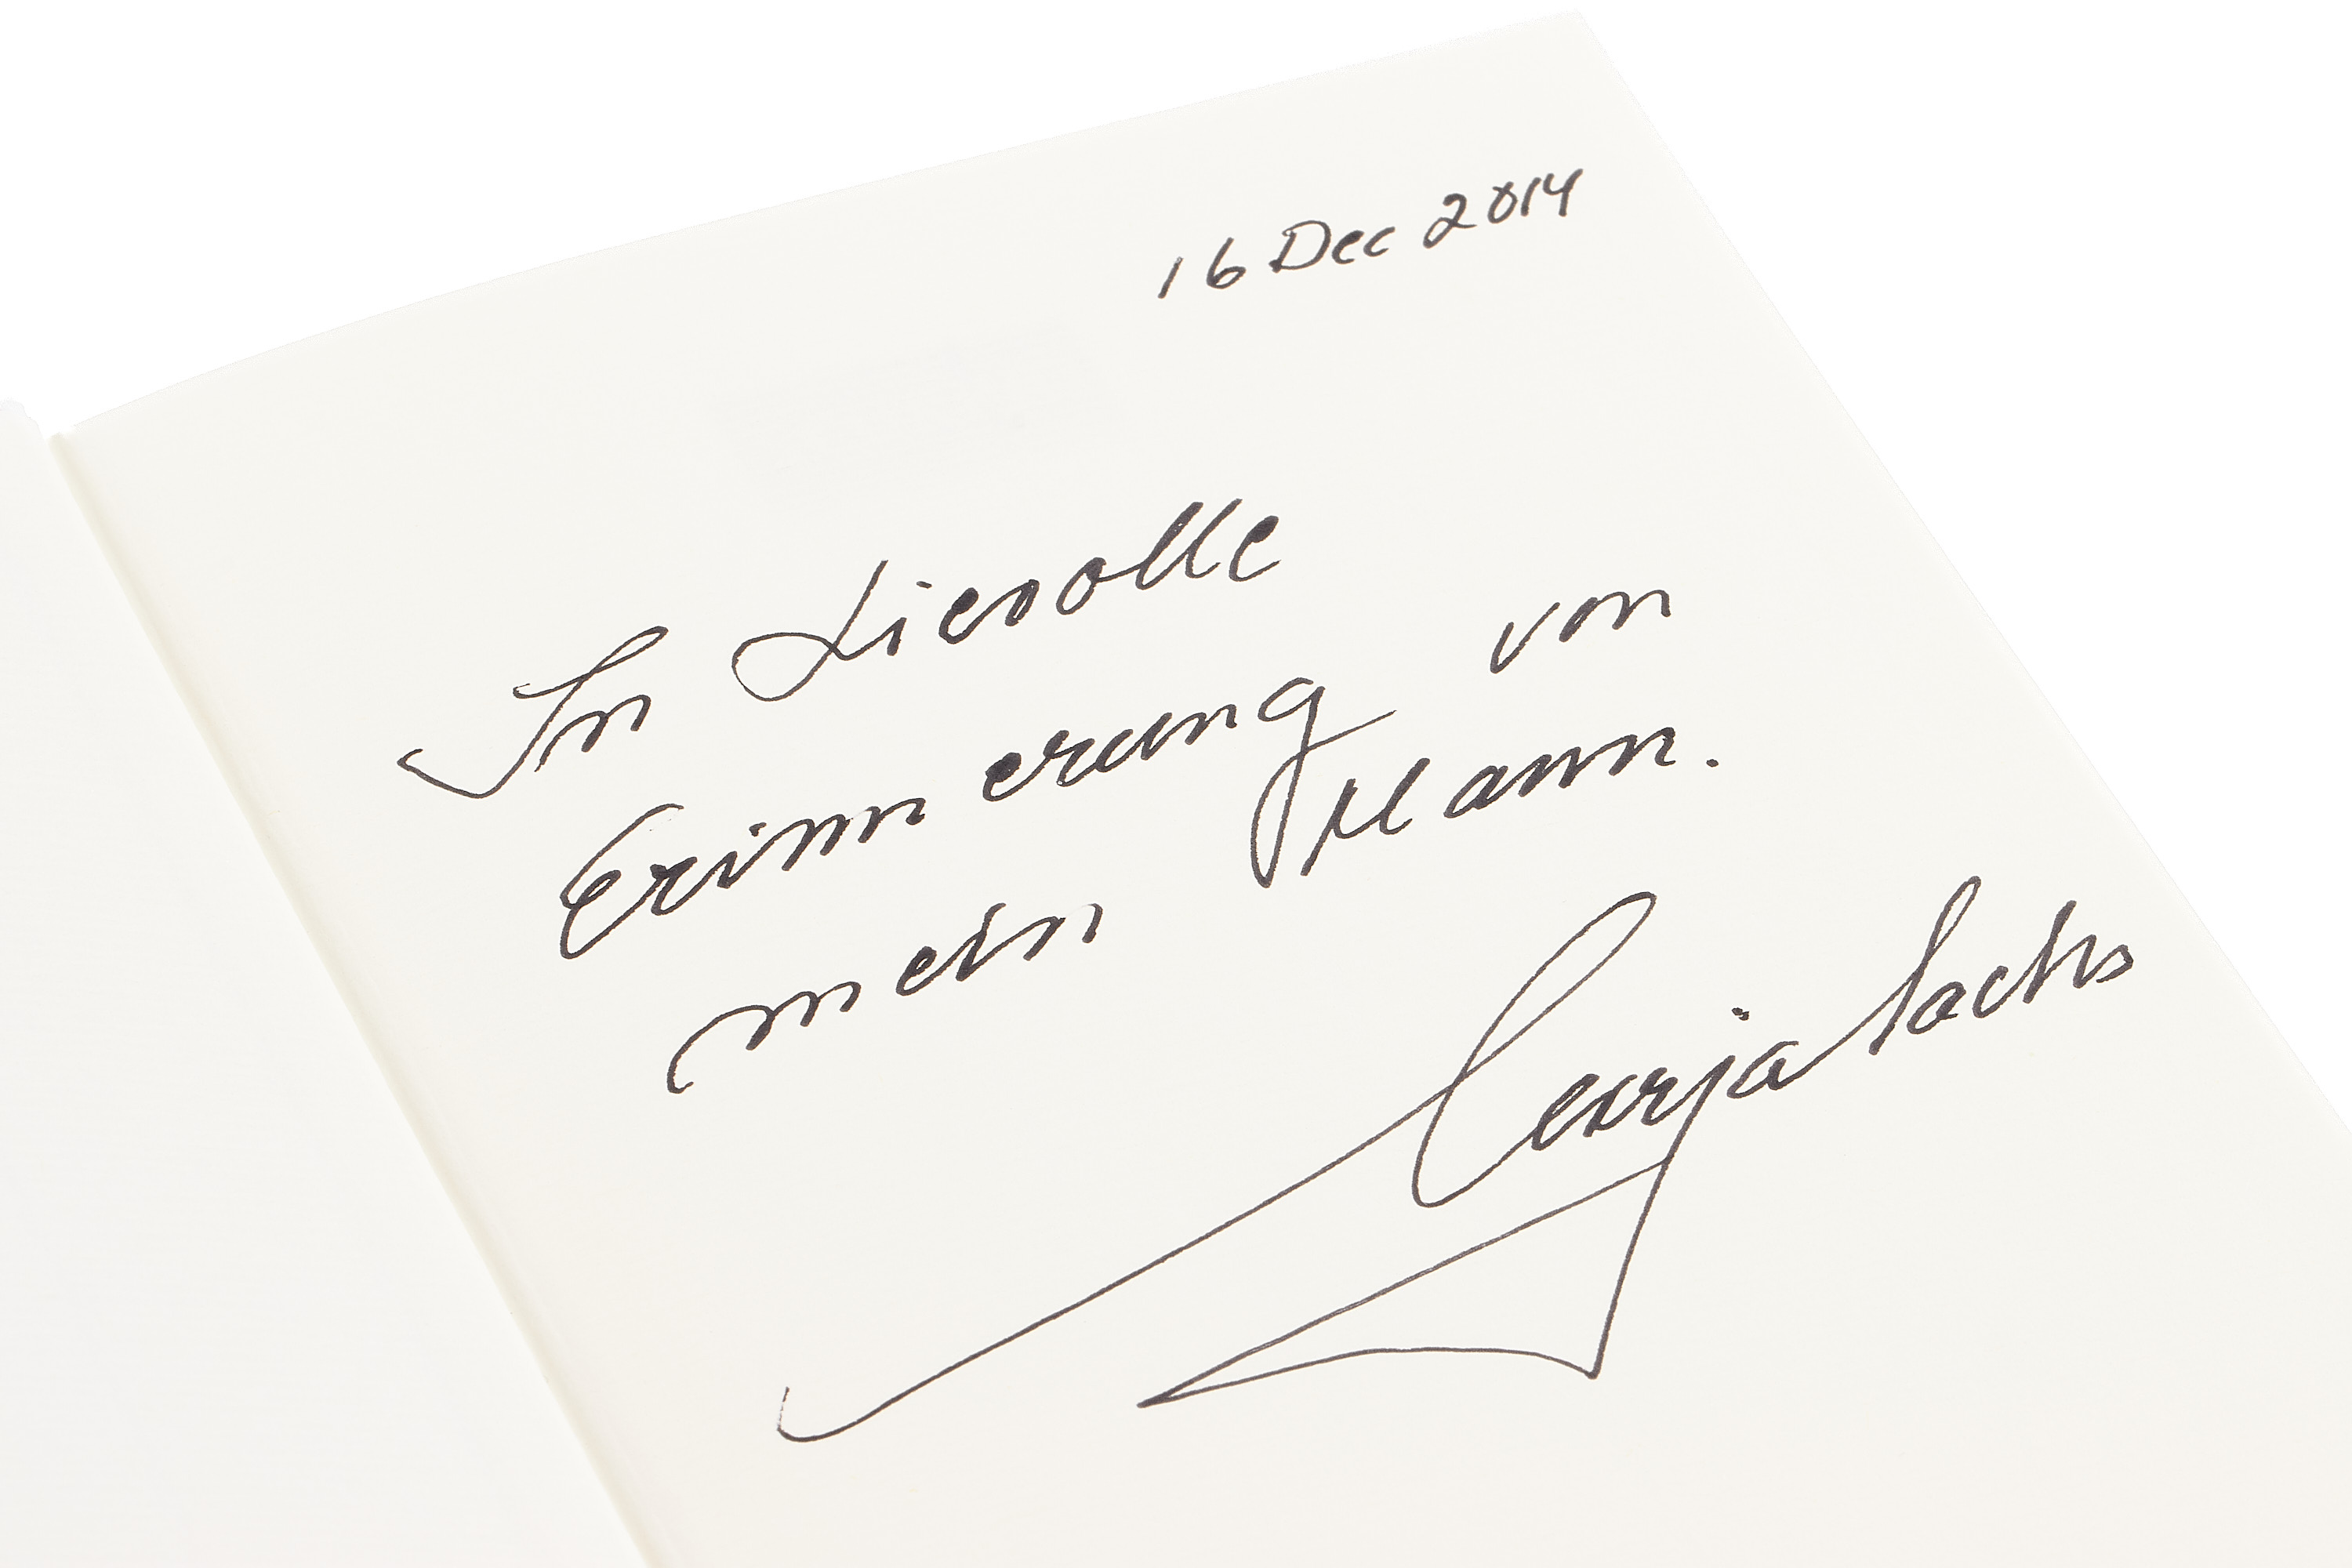 16 Dec 2014
In Lievolle
Erinnerung von
mein Mann.
Sachs